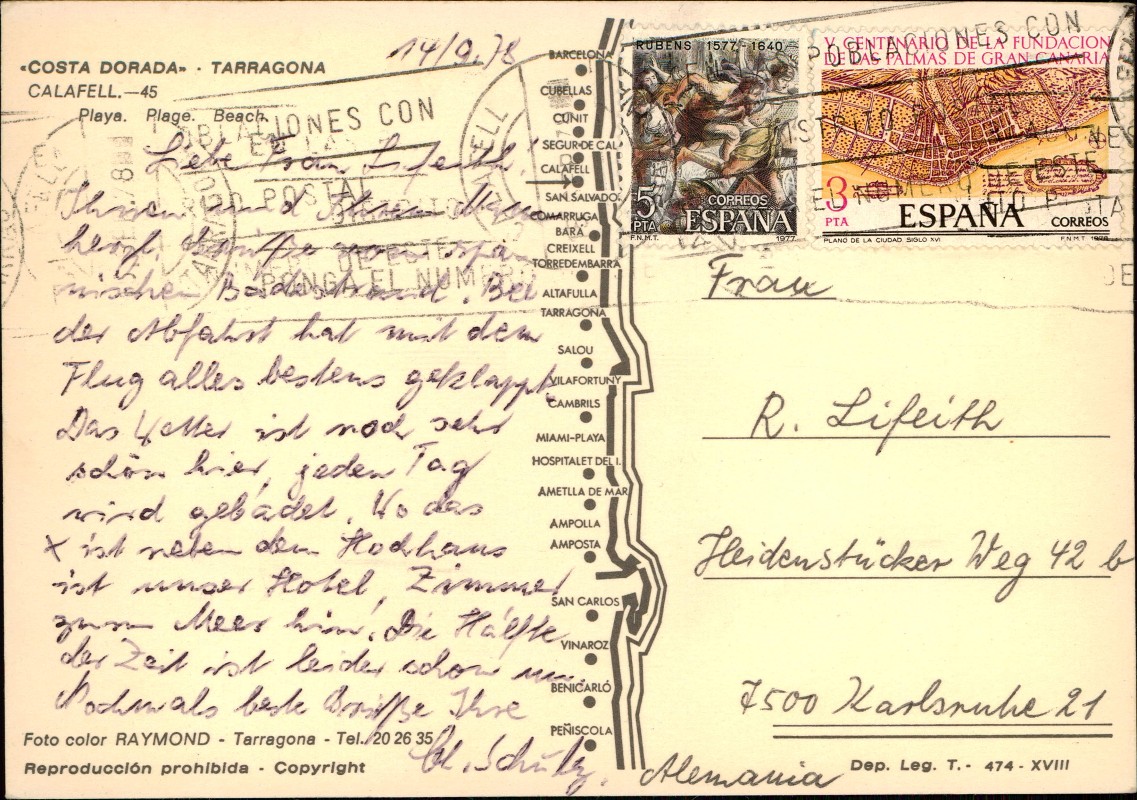 14/9.78
«COSTA DORADA» - TARRAGONA
CALAFELL.—45
Playa. Plage. Beach.
Liebe Frau Lifeith!
Ihnen und Ihrem
herzl. Grüße vom spa-
nischen Badestrand. Bei
der Abfahrt hat mit dem
Flug alles bestens geklappt.
Das Wetter ist noch sehr
schön hier, jeden Tag
wird gebadet. Wo das
x ist neben dem Hochhaus
ist unser Hotel, Zimmer
zum Meer hin. Die Hälfte
der Zeit ist leider schon um.
Nochmals beste Grüße Ihre
Schulz.
Foto color RAYMOND - Tarragona - Tel. 20 26 35
Reproducción prohibida - Copyright
BARCELONA
CUBELLAS
CUNIT
SEGUR DE CAL
CALAFELL
SAN SALVADOR
COMARRUGA
BARA
CREIXELL
TORREDEMBARRA
ALTAFULLA
TARRAGONA
SALOU
VILAFORTUNY
CAMBRILS
MIAMI-PLAYA
HOSPITALET DEL I.
AMETLLA DE MAR
AMPOLLA
AMPOSTA
SAN CARLOS
VINAROZ
BENICARLÓ
PEÑISCOLA
POBLACIONES CON
POSTAL
PONGA EL NUMERO
RUBENS 1577-1640
5
PTA
CORREOS
ESPAÑA
F.N.M.T.
1977
V CENTENARIO DE LA FUNDACION
DE LAS PALMAS DE GRAN CANARIA
3
PTA
ESPAÑA
CORREOS
PLANO DE LA CIUDAD. SIGLO XVI
F.N.M.T. 1978
POBLACIONES CON
Frau
R. Lifeith
Heidenstücker Weg 42 b
7500 Karlsruhe 21
Alemania
Dep. Leg. T. - 474 - XVIII